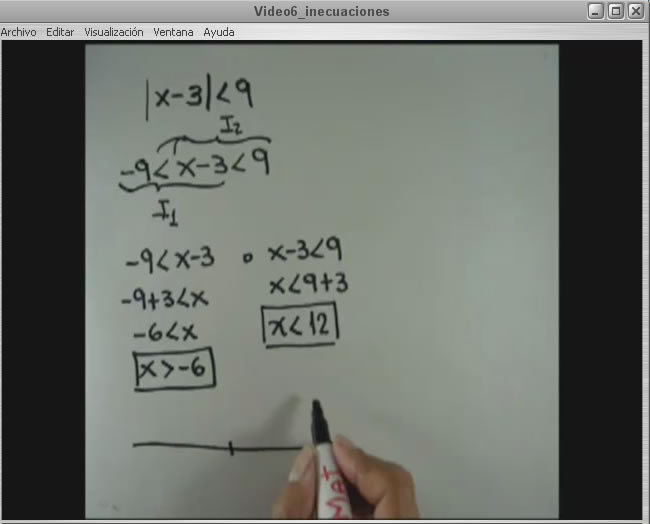 Video6_inecuaciones
Archivo Editar Visualización Ventana Ayuda
|x-3|<9
I2
-9<x-3<9
I1
-9<x-3 o x-3<9
-9+3<x x<9+3
-6<x x<12
x>-6
MAT